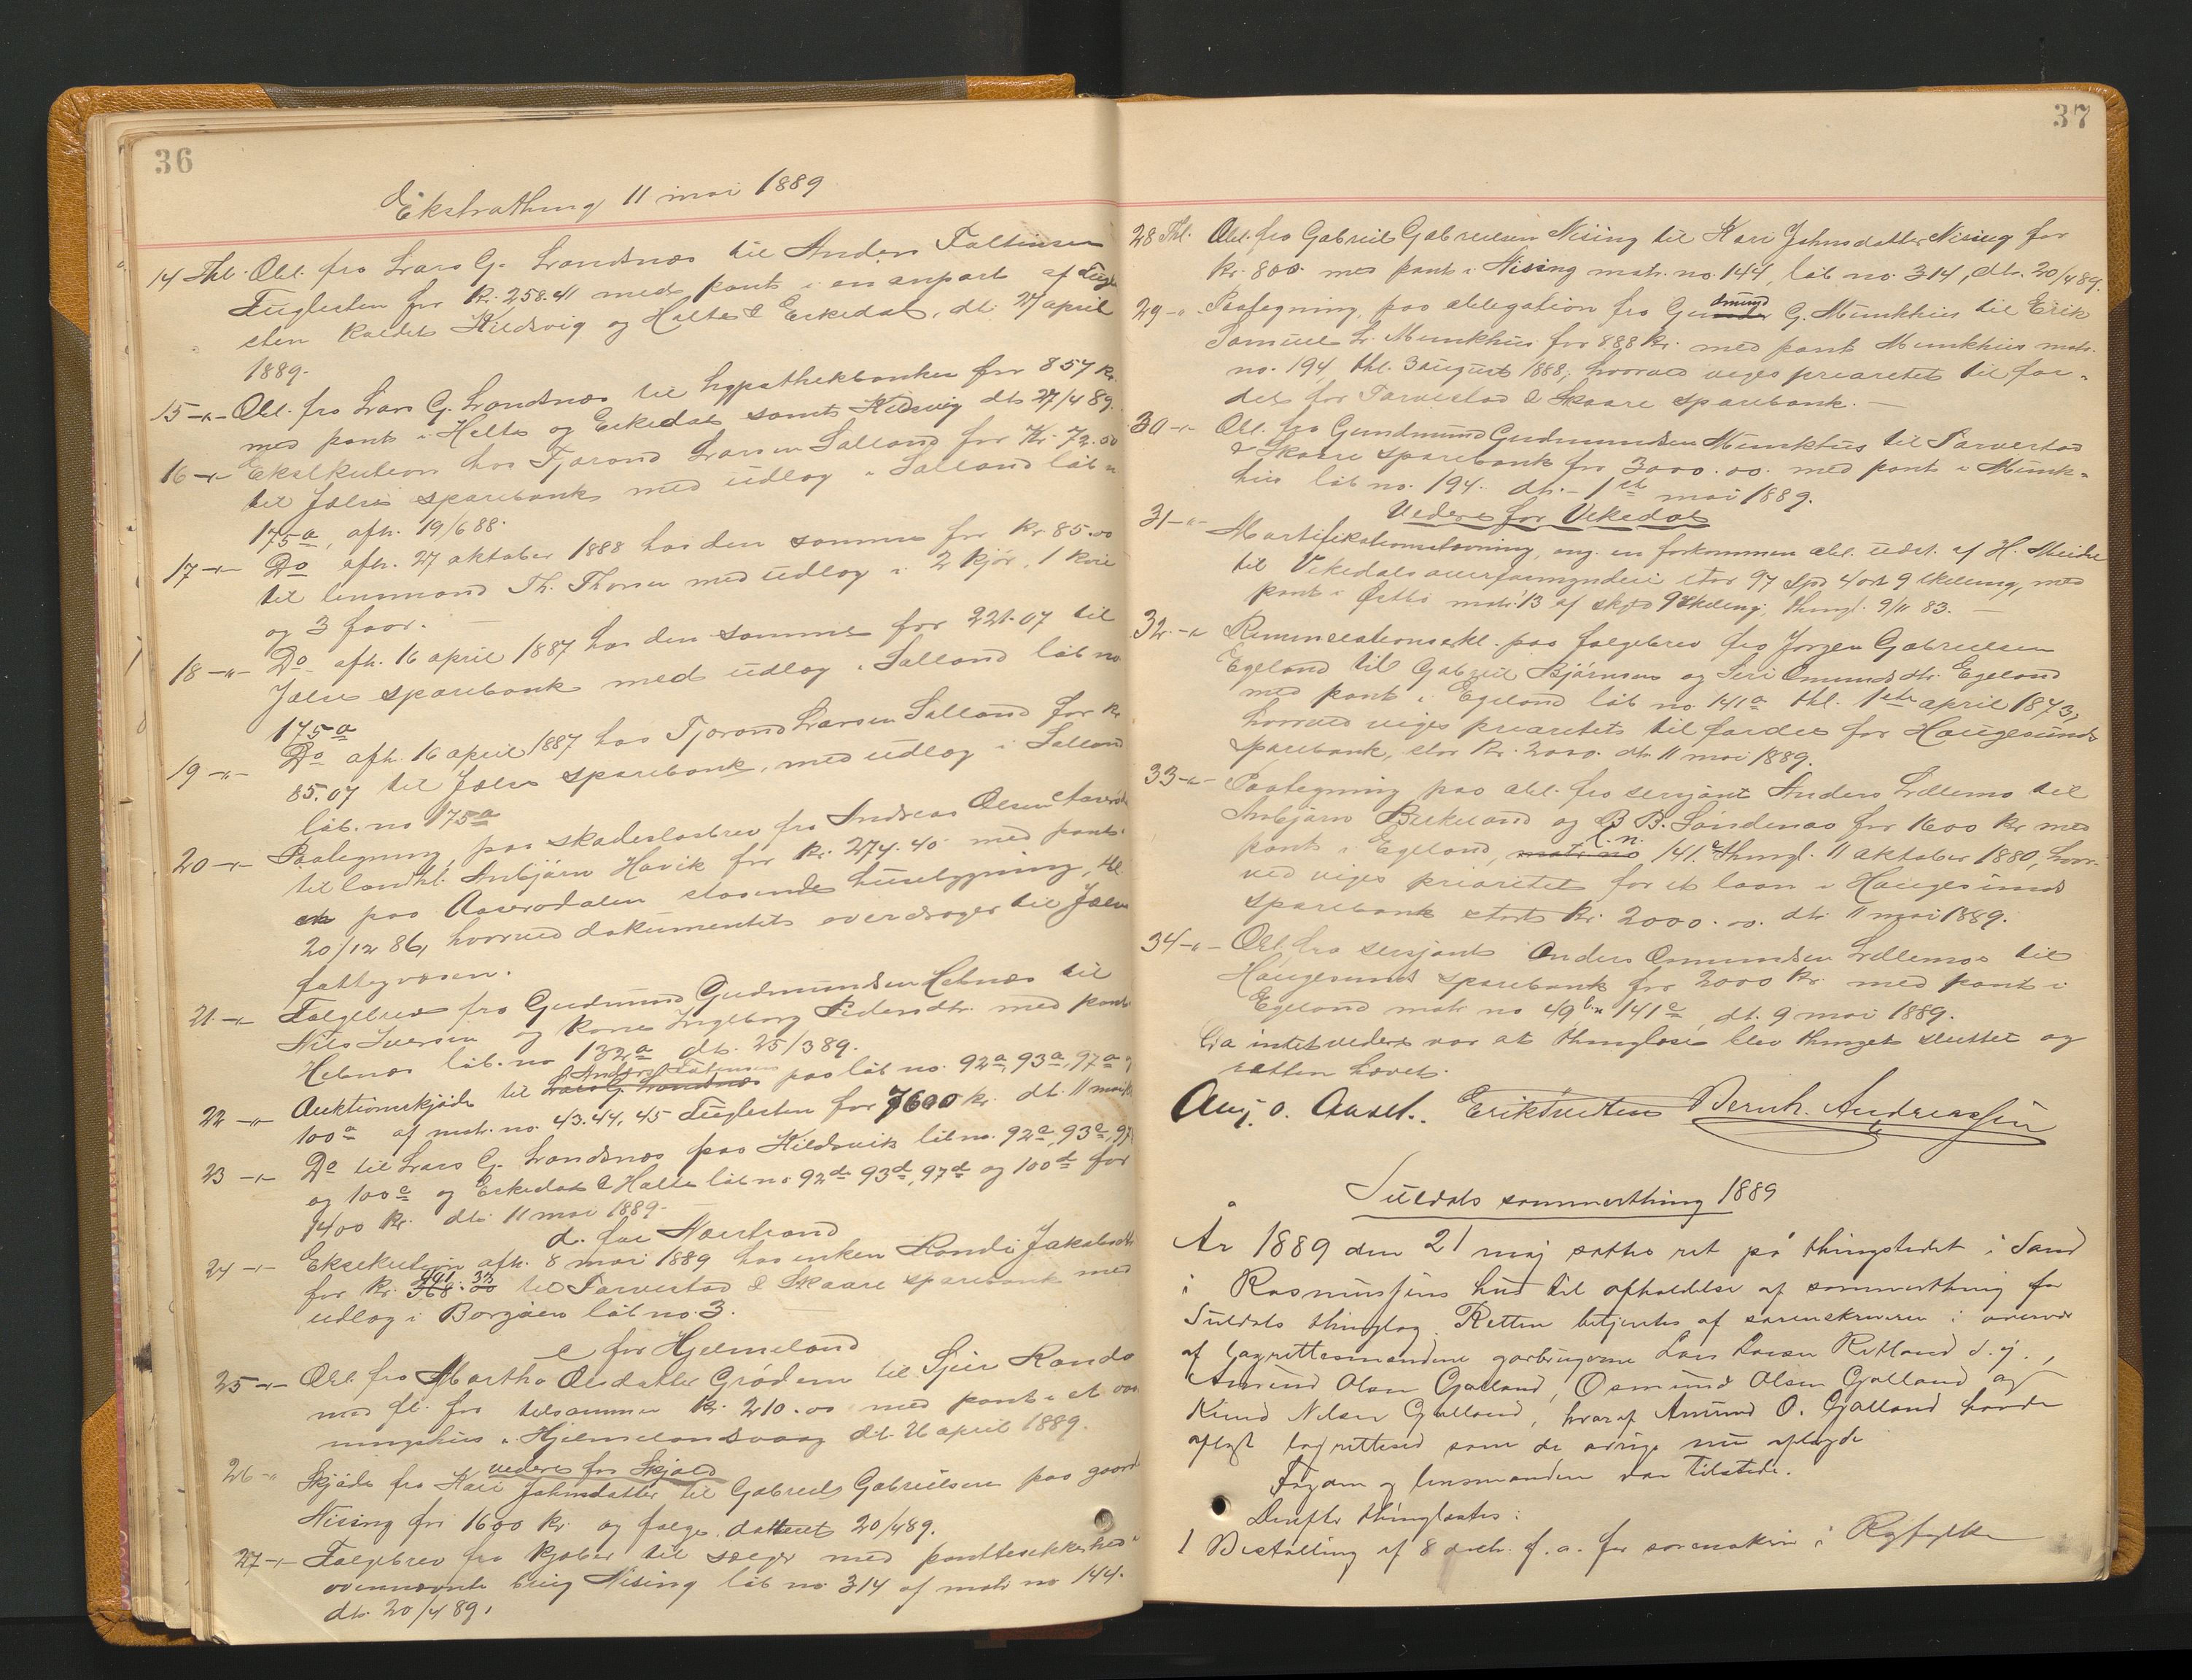 36
Ekstrathing 11 mai 1889
14 Thl. Obl. fra Lars G. Landsnæs til Anders Faltinsen
Fuglesten for Kr. 258.41 med pant i en anpart af Fugle
sten kaldet Kildsvig og Halte & Eskedal, dt. 27 april
1889.
15 -"- Obl. fra Lars G. Landsnæs til hypothekbanken for 857 kr.
med pant i Helte og Eskedal samt Kildsvig dt 27/4 89.
16 -"- Eksekution hos Tjerand Larsen Salland for Kr. 72.00
til Jælse sparebank med udlæg i Salland løb n
175a, afh. 19/6 88.
17 -"- Do afh. 27 oktober 1888 hos den samme for kr. 85.00
til lensmand Th. Thorsen med udlæg i 2 kjør, 1 kvie
og 3 faar.
18 -"- Do afh. 16 april 1887 hos den samme for 221.07 til
Jælse sparebank med udlæg i Salland løb no
175a
19 -"- Do afh. 16 april 1887 hos Tjerand Larsen Salland for kr
85.07 til Jælse sparebank, med udlæg i Salland
løb. no 175a
20 -"- Paategning paa skadesløsbrev fra Andreas Olsen
til landhl. Anbjørn Havik for kr. 274.40 med pant
paa Aaserødalen staaende husebygning, thl.
20/12 86, hvorved dokumentet overdrages til Jælse
fattigvæsen.
21 -"- Følgebrev fra Gudmund Gudmundsen Hebnæs til
Nils Iversen og kone Ingeborg Pedersdtr. med pant
Hebnæs løb. no 132a dt. 25/3 89.
22 -"- Auktionsskjøde til Lars G. Landsnæs Anders Faltinsen paa løb no. 92a, 93a, 97a og
100a af matr. no. 43, 44, 45 Fuglesten for 7600 kr. dt. 11 mai
23 -"- Do til Lars G. Landsnæs paa Kildsvik løb no. 92c, 93c, 97
og 100c og Eskedal & Halte løb no 92d 93d, 97d og 100d for
1400 Kr. dt. 11 mai 1889.
d. for Nærstrand
24 -"- Eksekution afh. 8 mai 1889 hos enken Randi Jakobsdtr
for kr. 368.20 til Torvestad & Skaare sparebank med
udlæg i Borgøen løb no. 3.
e for Hjelmeland
25 -"- Obl. fra Martha Olsdatter Grødem til Sjur Randa
med fl. for tilsammen kr. 210.00 med pant i et vaa
ningshus i Hjelmelandsvaag dt. 26 april 1889.
videre for Skjold
26 -" Skjøde fra Kari Johnsdatter til Gabriel Gabrielsen paa gaard
Nising for 1600 kr. og følge datteret 20/4 89.
27 -"- Følgebrev fra kjøber til sælger med pantesikkerhed i
ovennævnte brug Nising løb no 314 af matr no 144.
dt. 20/4 89.
37
28 Thl. Obl. fra Gabriel Gabrielsen Nising til Kari Johnsdatter Nising for
kr. 800 med pant i Nising matr. no. 144, løb no. 314, dt. 20/4 89.
29 -"- Paategning paa obligation fra Gudmund G. Munkhus til Erik
Samuel L. Munkhus for 888 kr. med pant Munkhus matr.
no. 194, thl. 3 august 1888, hvorved viges prioritet til for-
del for Torvestad & Skaare sparebank.
30 -"- Obl. fra Gundmund Gudmundsen Munkhus til Torvestad
& Skaare sparebank for 3000.00 med pant i Munk-
hus løb no. 194. dt. - 1ste mai 1889.
Videre for Vikedal
31 -"- Mortifikationsstevning, ang. en forkommen obl. udst. af H.
til Vikedals overformynderi stor 97 Spd 4 ort 9 skilling, med
pant i matr. 13 af skyld 9 skilling, thingl. 9/11 83.
32 -"- Renunciationserkl. paa følgebrev fra Jørgen Gabrielsen
Egeland til Gabriel Bjørnsen og Siri Omundsdtr. Egeland
med pant i Egeland løb no 141a thl. 1ste april 1873,
hvorved viges prioritet til fordel for Haugesunds
sparebank, stor kr. 2000. dt. 11 mai 1889.
33 -"- Paategning paa obl. fra sersjant Anders Lillemo til
Anbjørn Birkeland og B. B. Sandenæs for 1600 kr med
pant i Egeland, matr. no l. n. 141.e thingl. 11 oktober 1880, hvor-
ved viges prioritet for et laan i Haugesunds
sparebank stort kr. 2000.00. dt. 11 mai 1889.
34 -"- Obl. fra sersjant Anders Omundsen Lillemo til
Haugesunds sparebank for 2000 kr. med pant i
Egeland matr no 49 l.n 141e, dt. 9 mai 1889.
Da intet videre var at thinglæse blev thinget sluttet og
retten hævet.
Aug. O. Aasel. Erik Bernh. Andreassen
Suldals sommerthing 1889
År 1889 den 21 maj sattes ret på thingstedet i Sand
i Rasmussens hus til afholdelse af sommerthing for
Suldals thinglag. Retten betjentes af sorenskriveren i overvær
af lagrettesmændene gårdbrugerne Lars Larsen Ritland d.y.,
Amund Olsen Gjælland, Osmund Olsen Gjælland og
Knud Nilsen Gjælland, hvoraf Amund O. Gjælland havde
aflagt lagretteed som de øvrige nu aflagde
Fogden og lensmanden var tilstede.
Derefter thinglæstes:
1 Bestalling af 8 decbr. f. a. for sorenskriver i Ryfylke